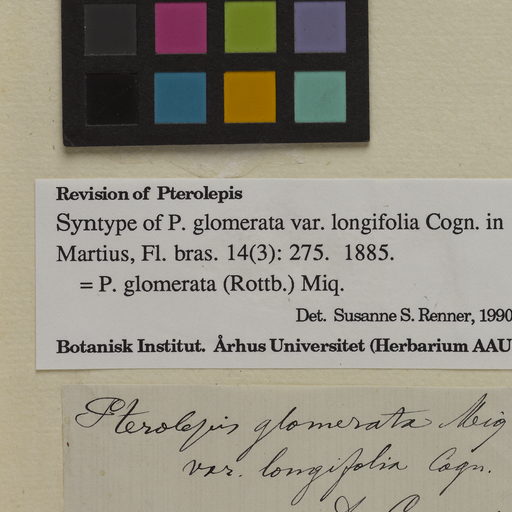 Revision of Pterolepis
Syntype of P. glomerata var. longifolia Cogn. in
Martius, Fl. bras. 14(3): 275. 1885.
= P. glomerata (Rottb.) Miq.
Det. Susanne S. Renner, 1990
Botanisk Institut. Århus Universitet (Herbarium AAU
Pterolepis glomerata Miq
var. longifolia Cogn.